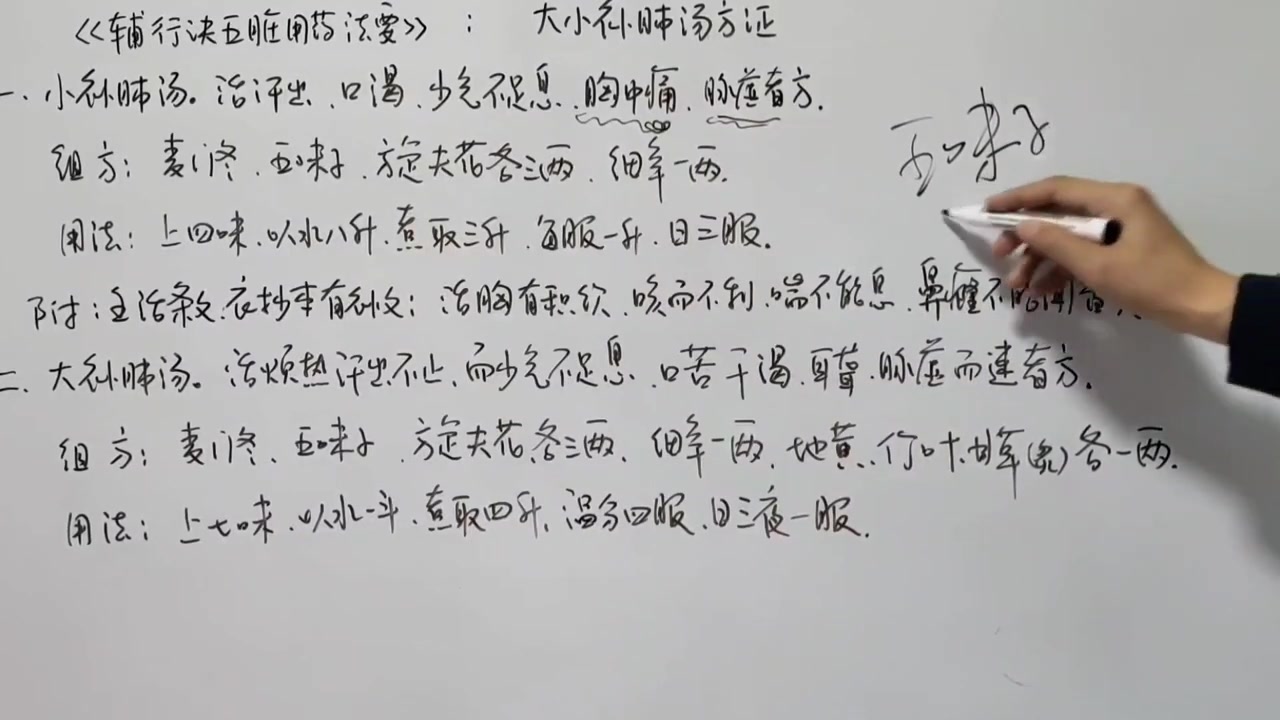 《辅行诀五脏用药法要》： 大小补肺汤方证
一、小补肺汤。治汗出、口渴、少气不足息、胸中痛、脉虚者方。
五味子
组方：麦门冬、五味子、旋夫花各三两、细辛一两。
用法：上四味、以水八升、煮取三升、每服一升、日三服。
附：主治条文、衣抄本有别文：治胸有积饮、咳而不利、喘不能息、鼻癰不
二、大补肺汤。治烦热汗出不止、而少气不足息、口苦干渴、耳聋、脉虚而速者方。
组方：麦门冬、五味子、旋夫花各三两、细辛一两、地黄、竹叶、甘草(炙)各一两。
用法：上七味、以水一斗、煮取四升、温分四服、日三夜一服。